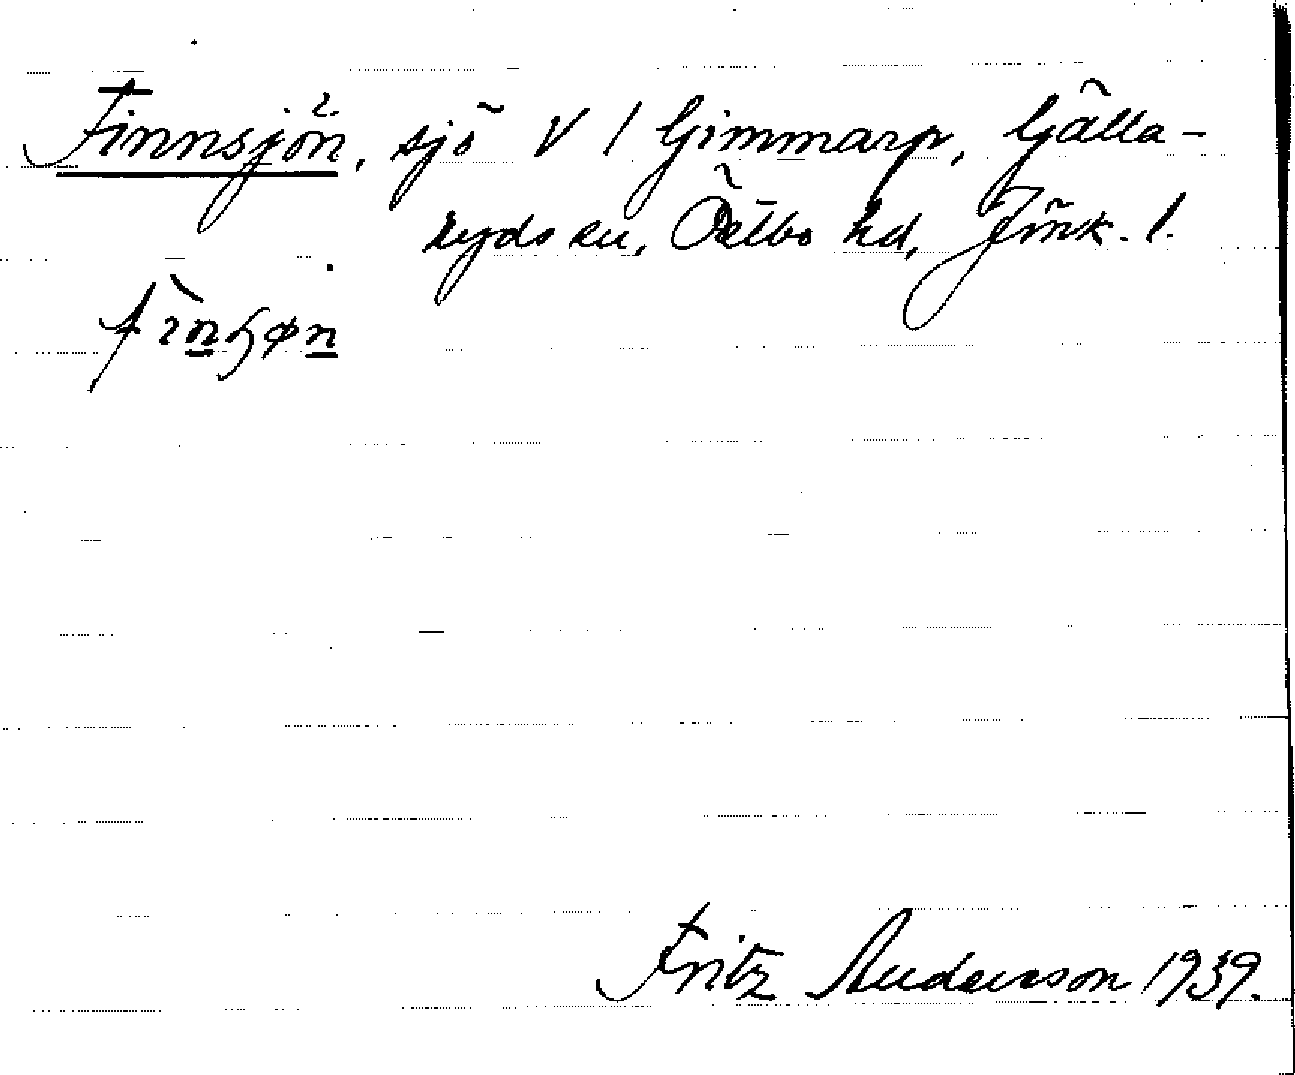 Finnsjön, sjö V / Gimmarp, Gälla-
ryds sn, Östbo hd, Jönk. l.
fìnʒøn
Fritz Andersson 1939.